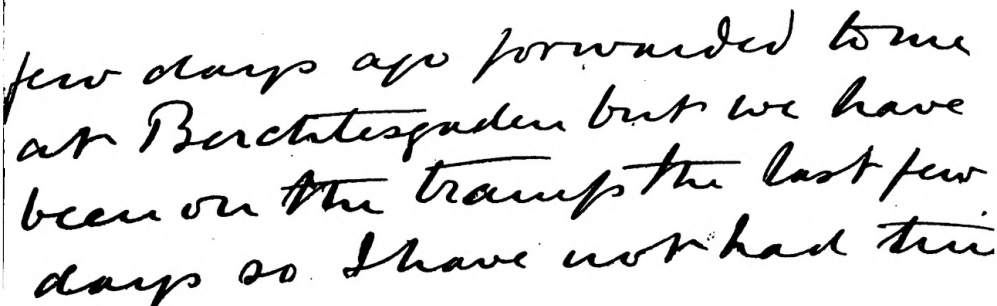 few days ago forwarded to me
at Berchtesgaden but we have
been on the tramp the last few
days so I have not had tim